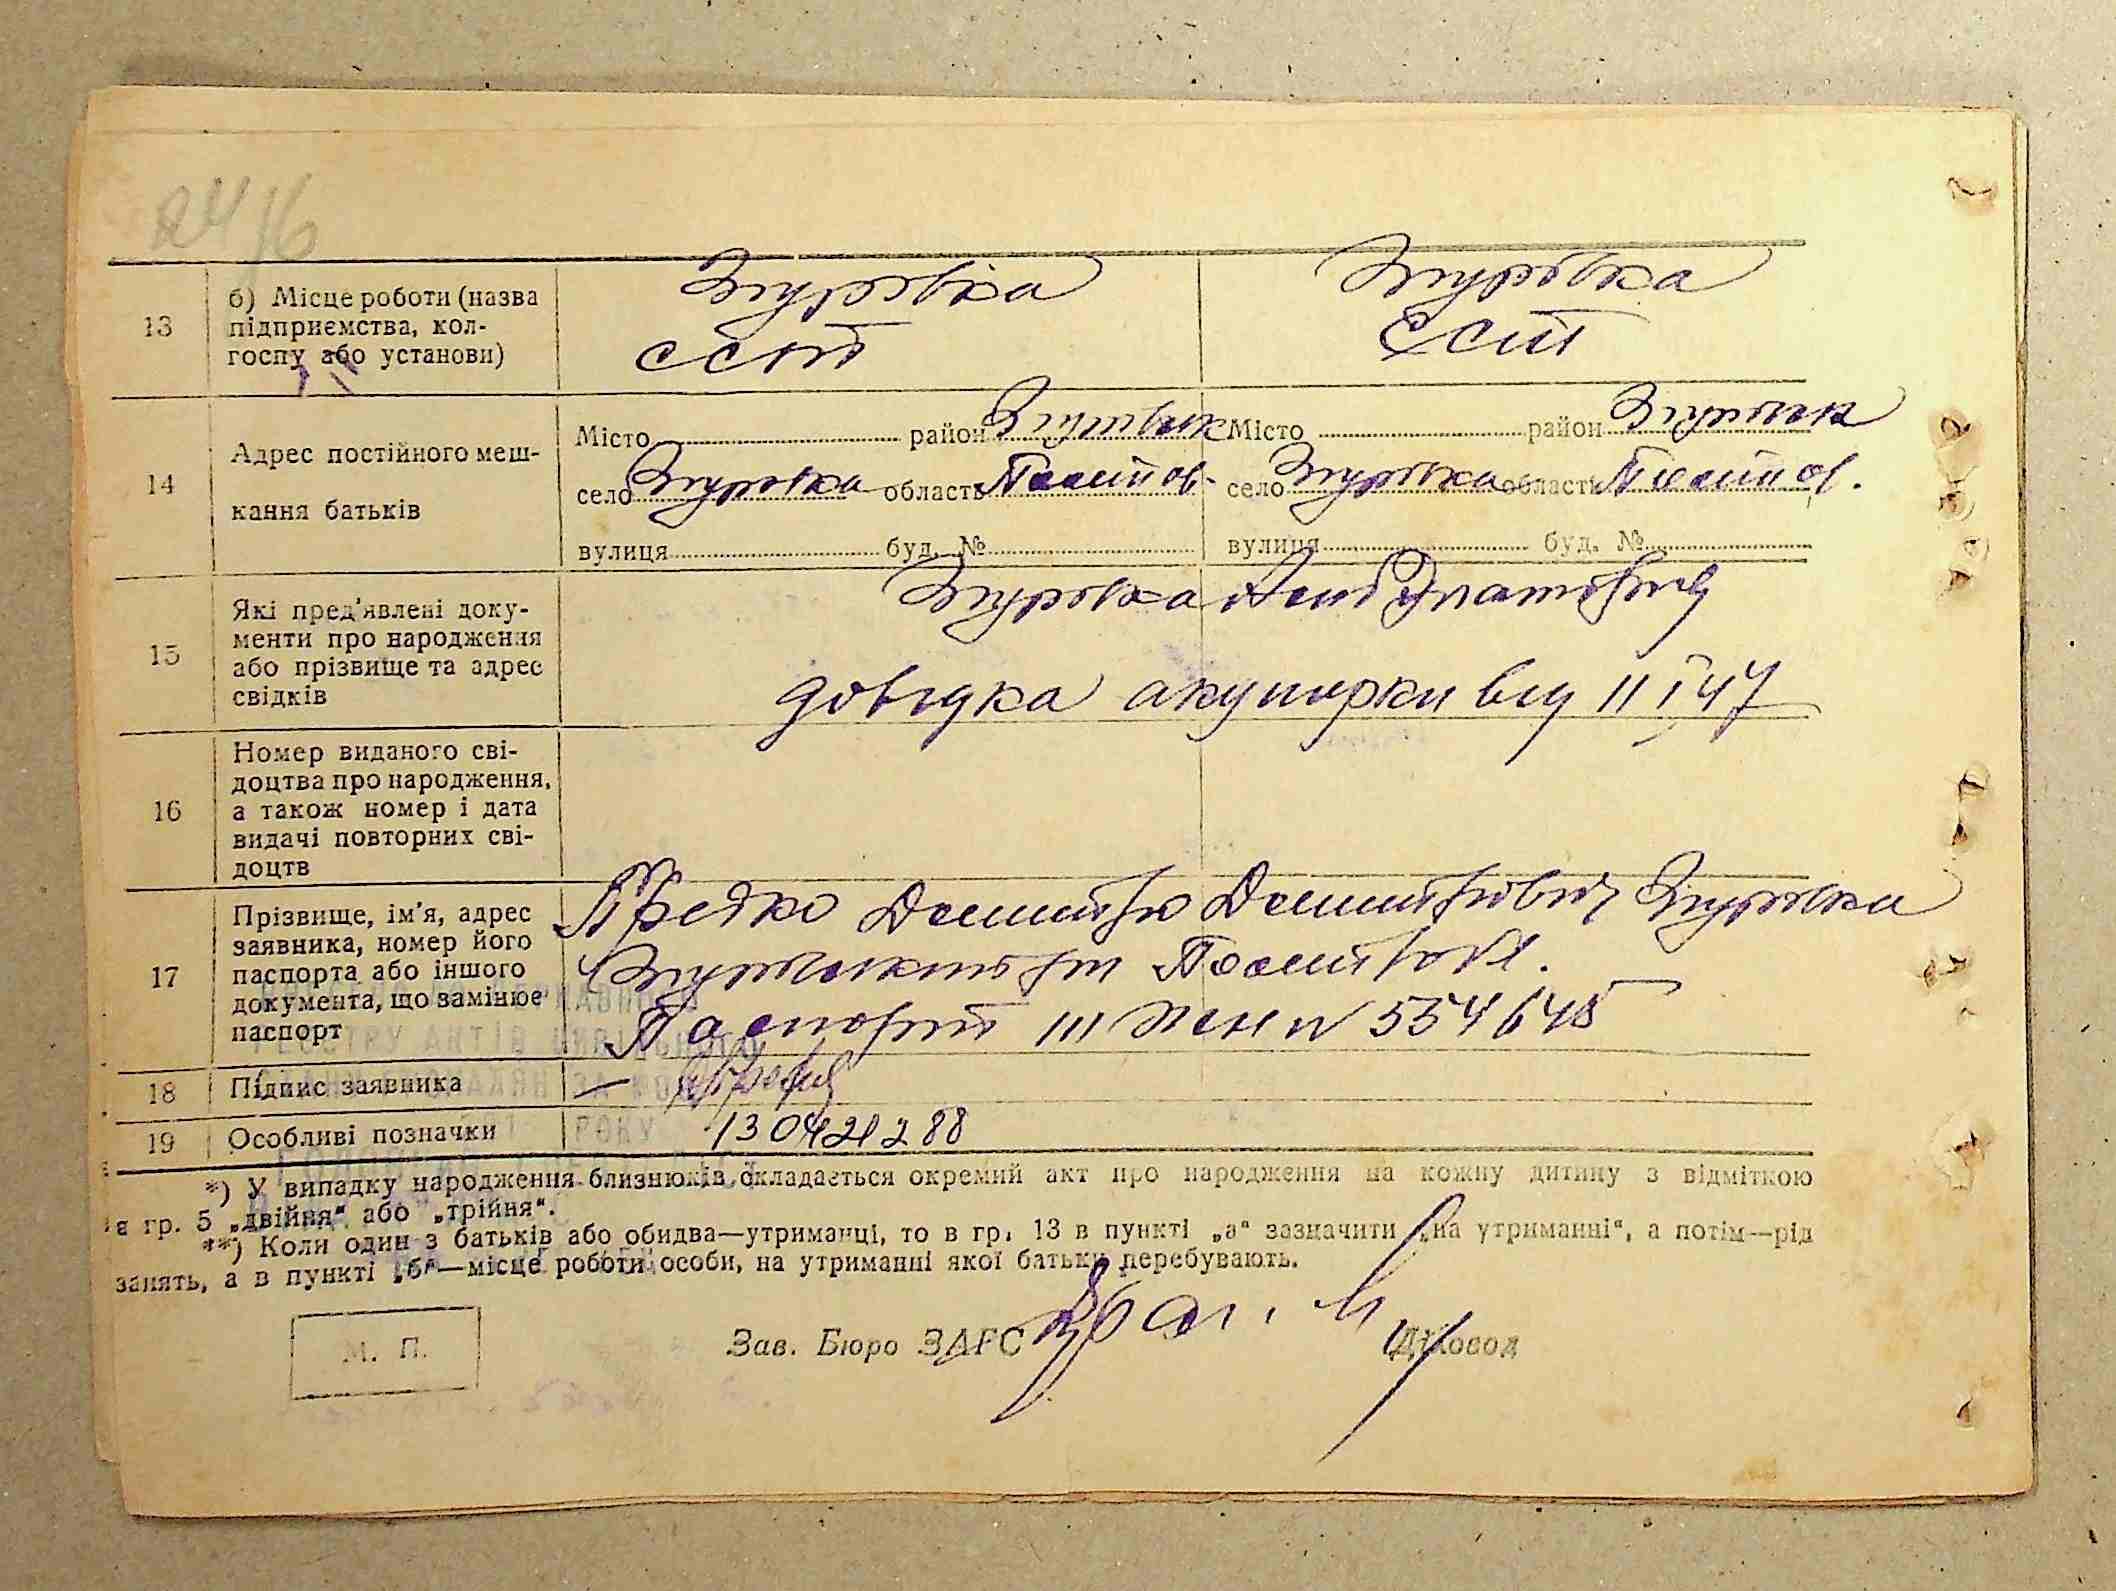 13 б) Місце роботи (назва підприємства, колгоспу або установи)
Згурівка Згурівка
ССТ ССТ
14 Адрес постійного мешкання батьків
Місто район Згурівськ Місто район Згурівськ
село Згурівка область Полтав. село Згурівка область Полтав.
вулиця буд. № вулиця буд. №
15 Які пред'явлені документи про народження або прізвище та адрес свідків
Згурівка
довідка акушерки від 11 I 47
16 Номер виданого свідоцтва про народження, а також номер і дата видачі повторних свідоцтв
17 Прізвище, ім'я, адрес заявника, номер його паспорта або іншого документа, що замінює паспорт
Дмитро Дмитрович Згурівка
Згурівськ Полтав
Паспорт III № 554648
18 Підпис заявника
19 Особливі позначки
*) У випадку народження близнюків складається окремий акт про народження на кожну дитину з відміткою
в гр. 5 „двійня“ або „трійня“.
**) Коли один з батьків або обидва—утриманці, то в гр. 13 в пункті „а“ зазначити „на утриманні“, а потім—рід
занять, а в пункті „б“—місце роботи особи, на утриманні якої батьки перебувають.
М. П.
Зав. Бюро ЗАГС Діловод